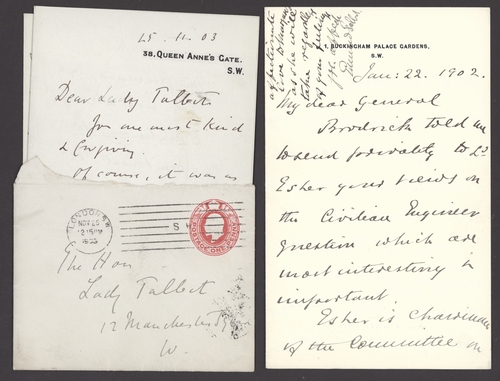 25. 11. 03
38. QUEEN ANNE'S GATE.
S.W.
Dear Lady Talbot
for one most kind
& forgiving.
Of course, it was as
LONDON S.W.
NOV 25
12 15 PM
1903
POSTAGE ONE PENNY
The Hon
Lady Talbot
12 Manchester Sq
W.
1, BUCKINGHAM PALACE GARDENS,
S.W.
Jan: 22. 1902.
My dear General
Brodrick told me
to send privately to Ld
Esher your views on
the Civilian Engineer
question which are
most interesting &
important.
Esher is Chairman
of the Committee on